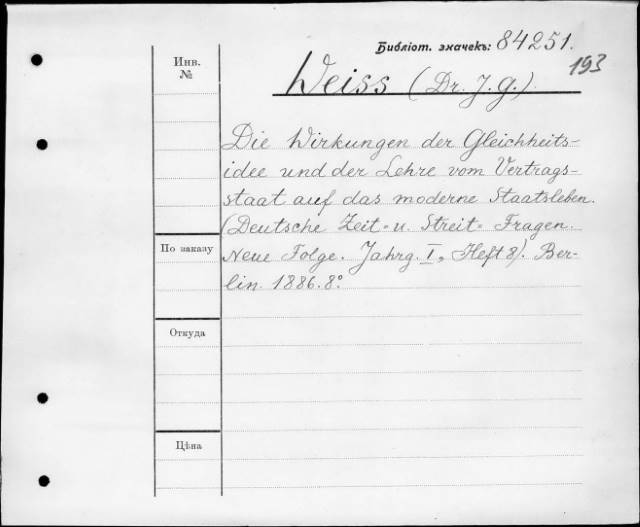 Библіот. значекъ: 84251.
193
Инв.
№
Weiss (Dr. J. G.)
Die Wirkungen der Gleichheits-
idee und der Lehre vom Vertrags-
staat auf das moderne Staatsleben.
(Deutsche Zeit- u. Streit- Fragen.
Neue Folge. Jahrg. I, Heft 8). Ber-
lin. 1886. 8º
По заказу
Откуда
Цѣна